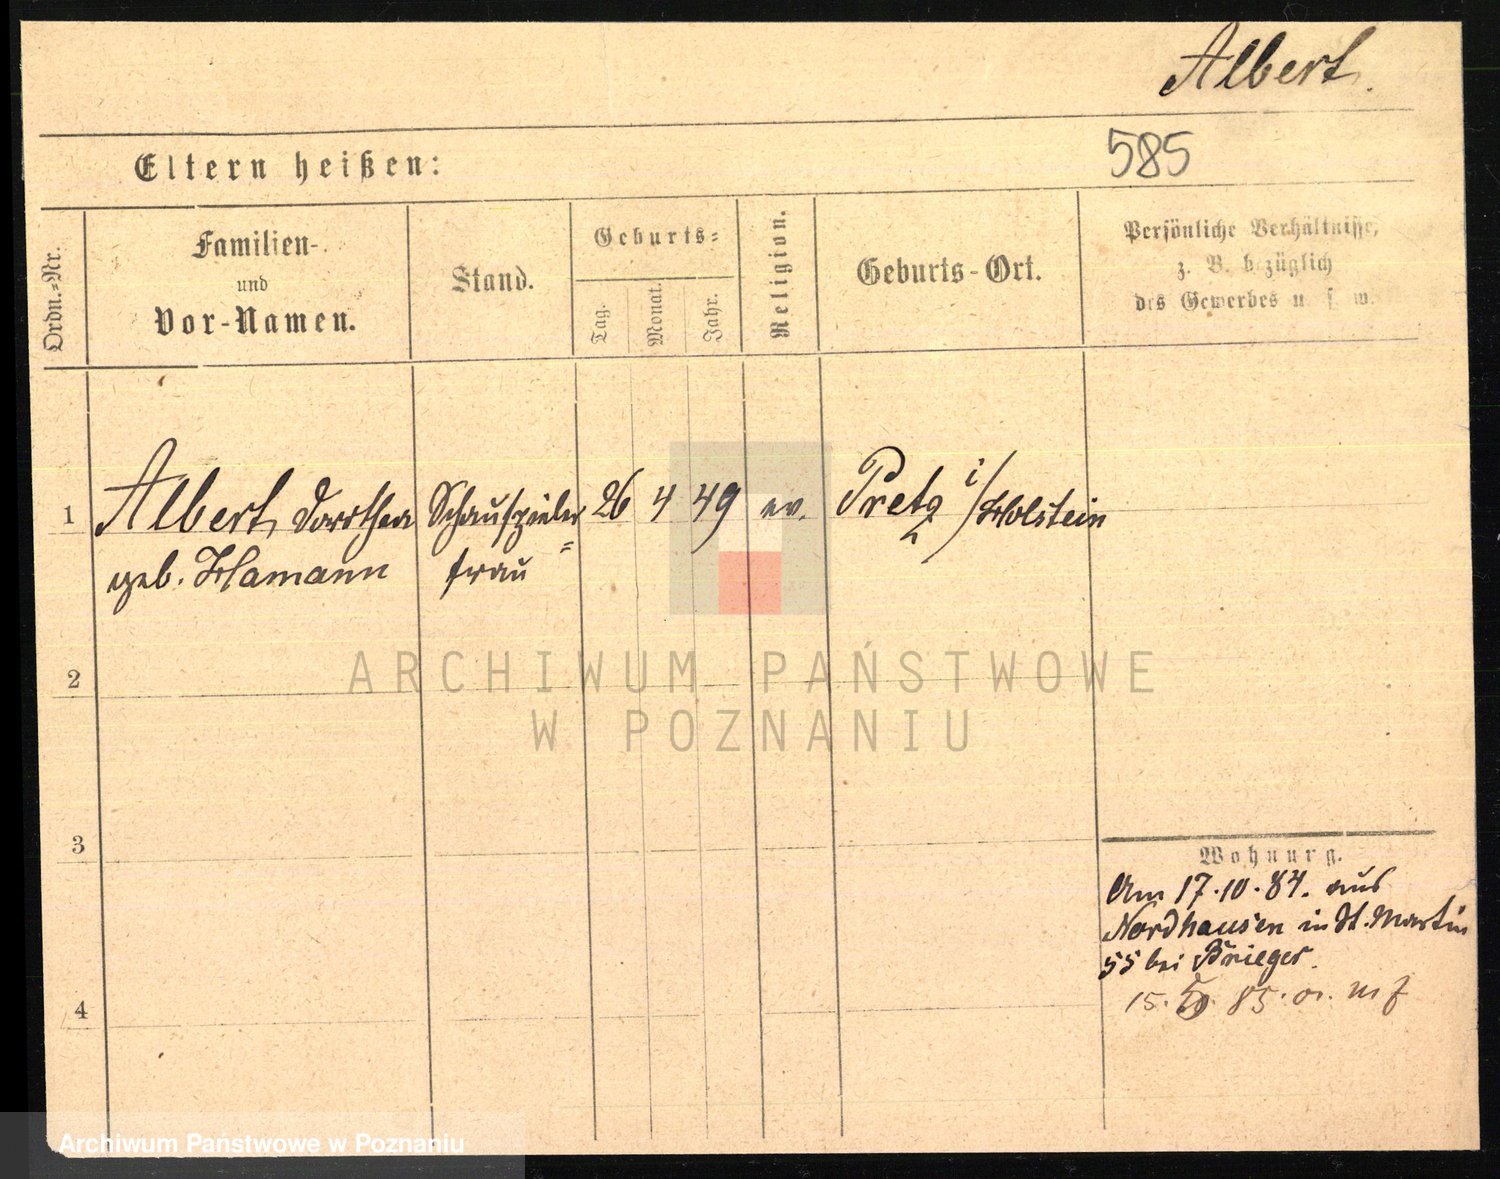 Albert.
585
Eltern heißen:
Ordn.-Nr.
Familien-
und
Vor-Namen.
Stand.
Geburts-
Tag.
Monat.
Jahr.
Religion.
Geburts-Ort.
Persönliche Verhältnisse,
z. B. bezüglich
des Gewerbes u. s. w.
1 Albert, Dorothea Schauspieler 26 4 49 ev. Pretz i/Holstein
geb. Hamann frau
2
ARCHIWUM PAŃSTWOWE
W POZNANIU
3
Wohnung.
Am 17.10.84. aus
Nordhausen in St. Martin
55 bei Brieger.
4
15. 85.
Archiwum Państwowe w Poznaniu